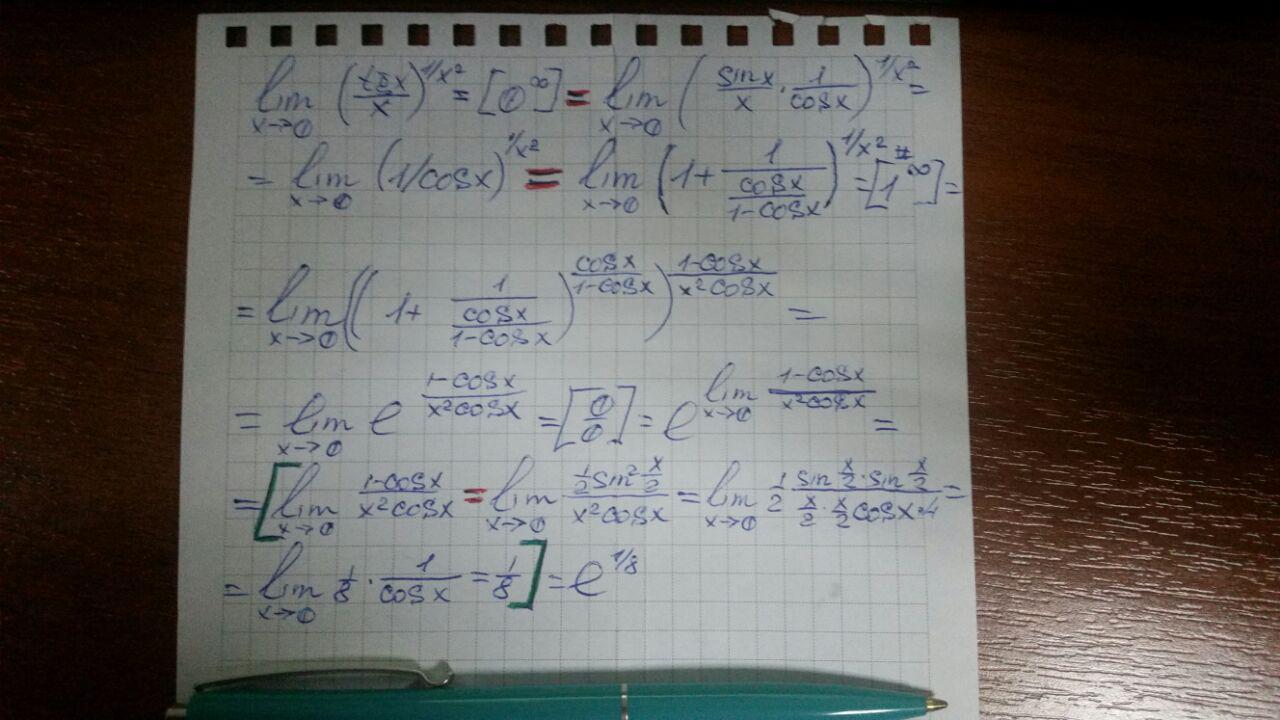 lim x→0 (tgx/x)^1/x² = [0^∞] = lim x→0 (sinx/x · 1/cosx)^1/x² =
= lim x→0 (1/cosx)^1/x² = lim x→0 (1 + 1/(cosx/(1-cosx)))^1/x² = [1^∞] =
= lim x→0 ((1 + 1/(cosx/(1-cosx)))^(cosx/(1-cosx)))^((1-cosx)/(x²cosx)) =
= lim x→0 e^((1-cosx)/(x²cosx)) = [0/0] = e^(lim x→0 (1-cosx)/(x²cosx)) =
= [lim x→0 (1-cosx)/(x²cosx) = lim x→0 (1/2 sin² x/2)/(x²cosx) = lim x→0 1/2 (sin x/2 · sin x/2)/(x/2 · x/2 cosx · 4) =
= lim x→0 1/8 · 1/cosx = 1/8] = e^1/8